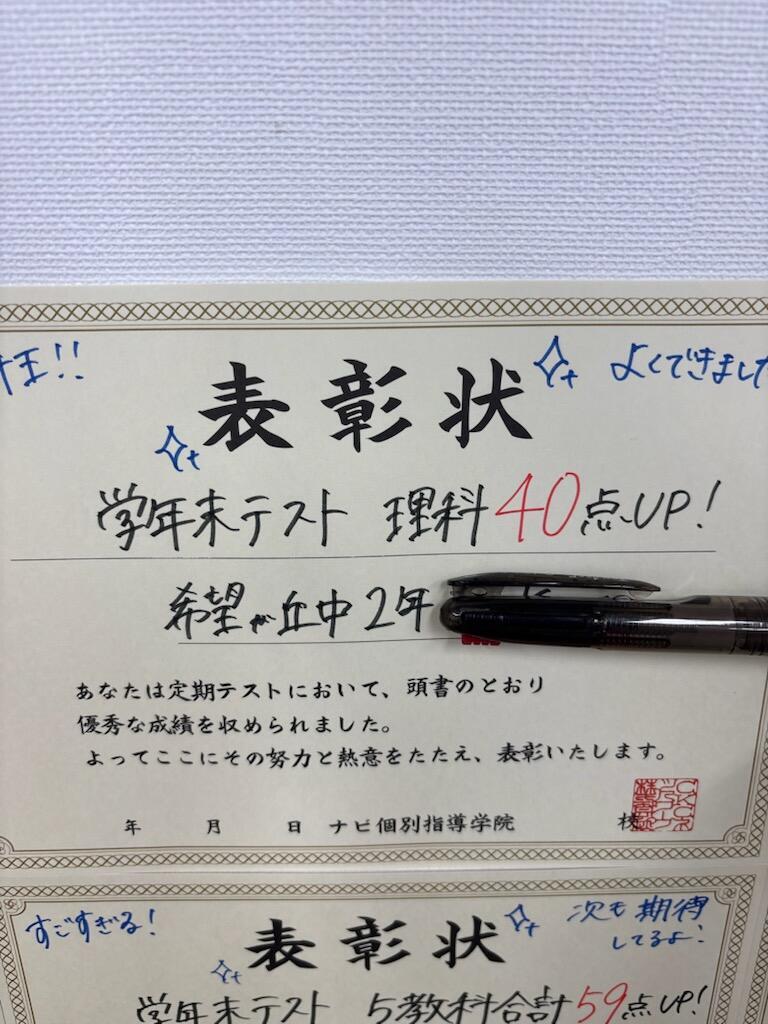 よくできました
表彰状
学年末テスト 理科40点UP!
希望が丘中2年
あなたは定期テストにおいて、頭書のとおり
優秀な成績を収められました。
よってここにその努力と熱意をたたえ、表彰いたします。
年 月 日 ナビ個別指導学院 校
すごすぎる!
次も期待
してるよ!
表彰状
学年末テスト 5教科合計59点UP!